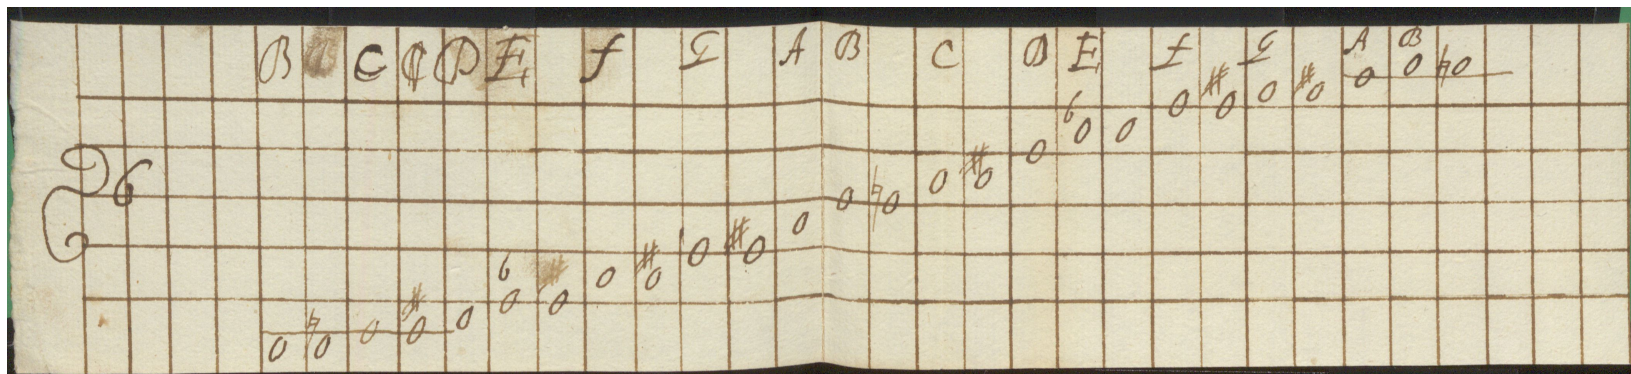 B C C D E f G A B C D E f G A B